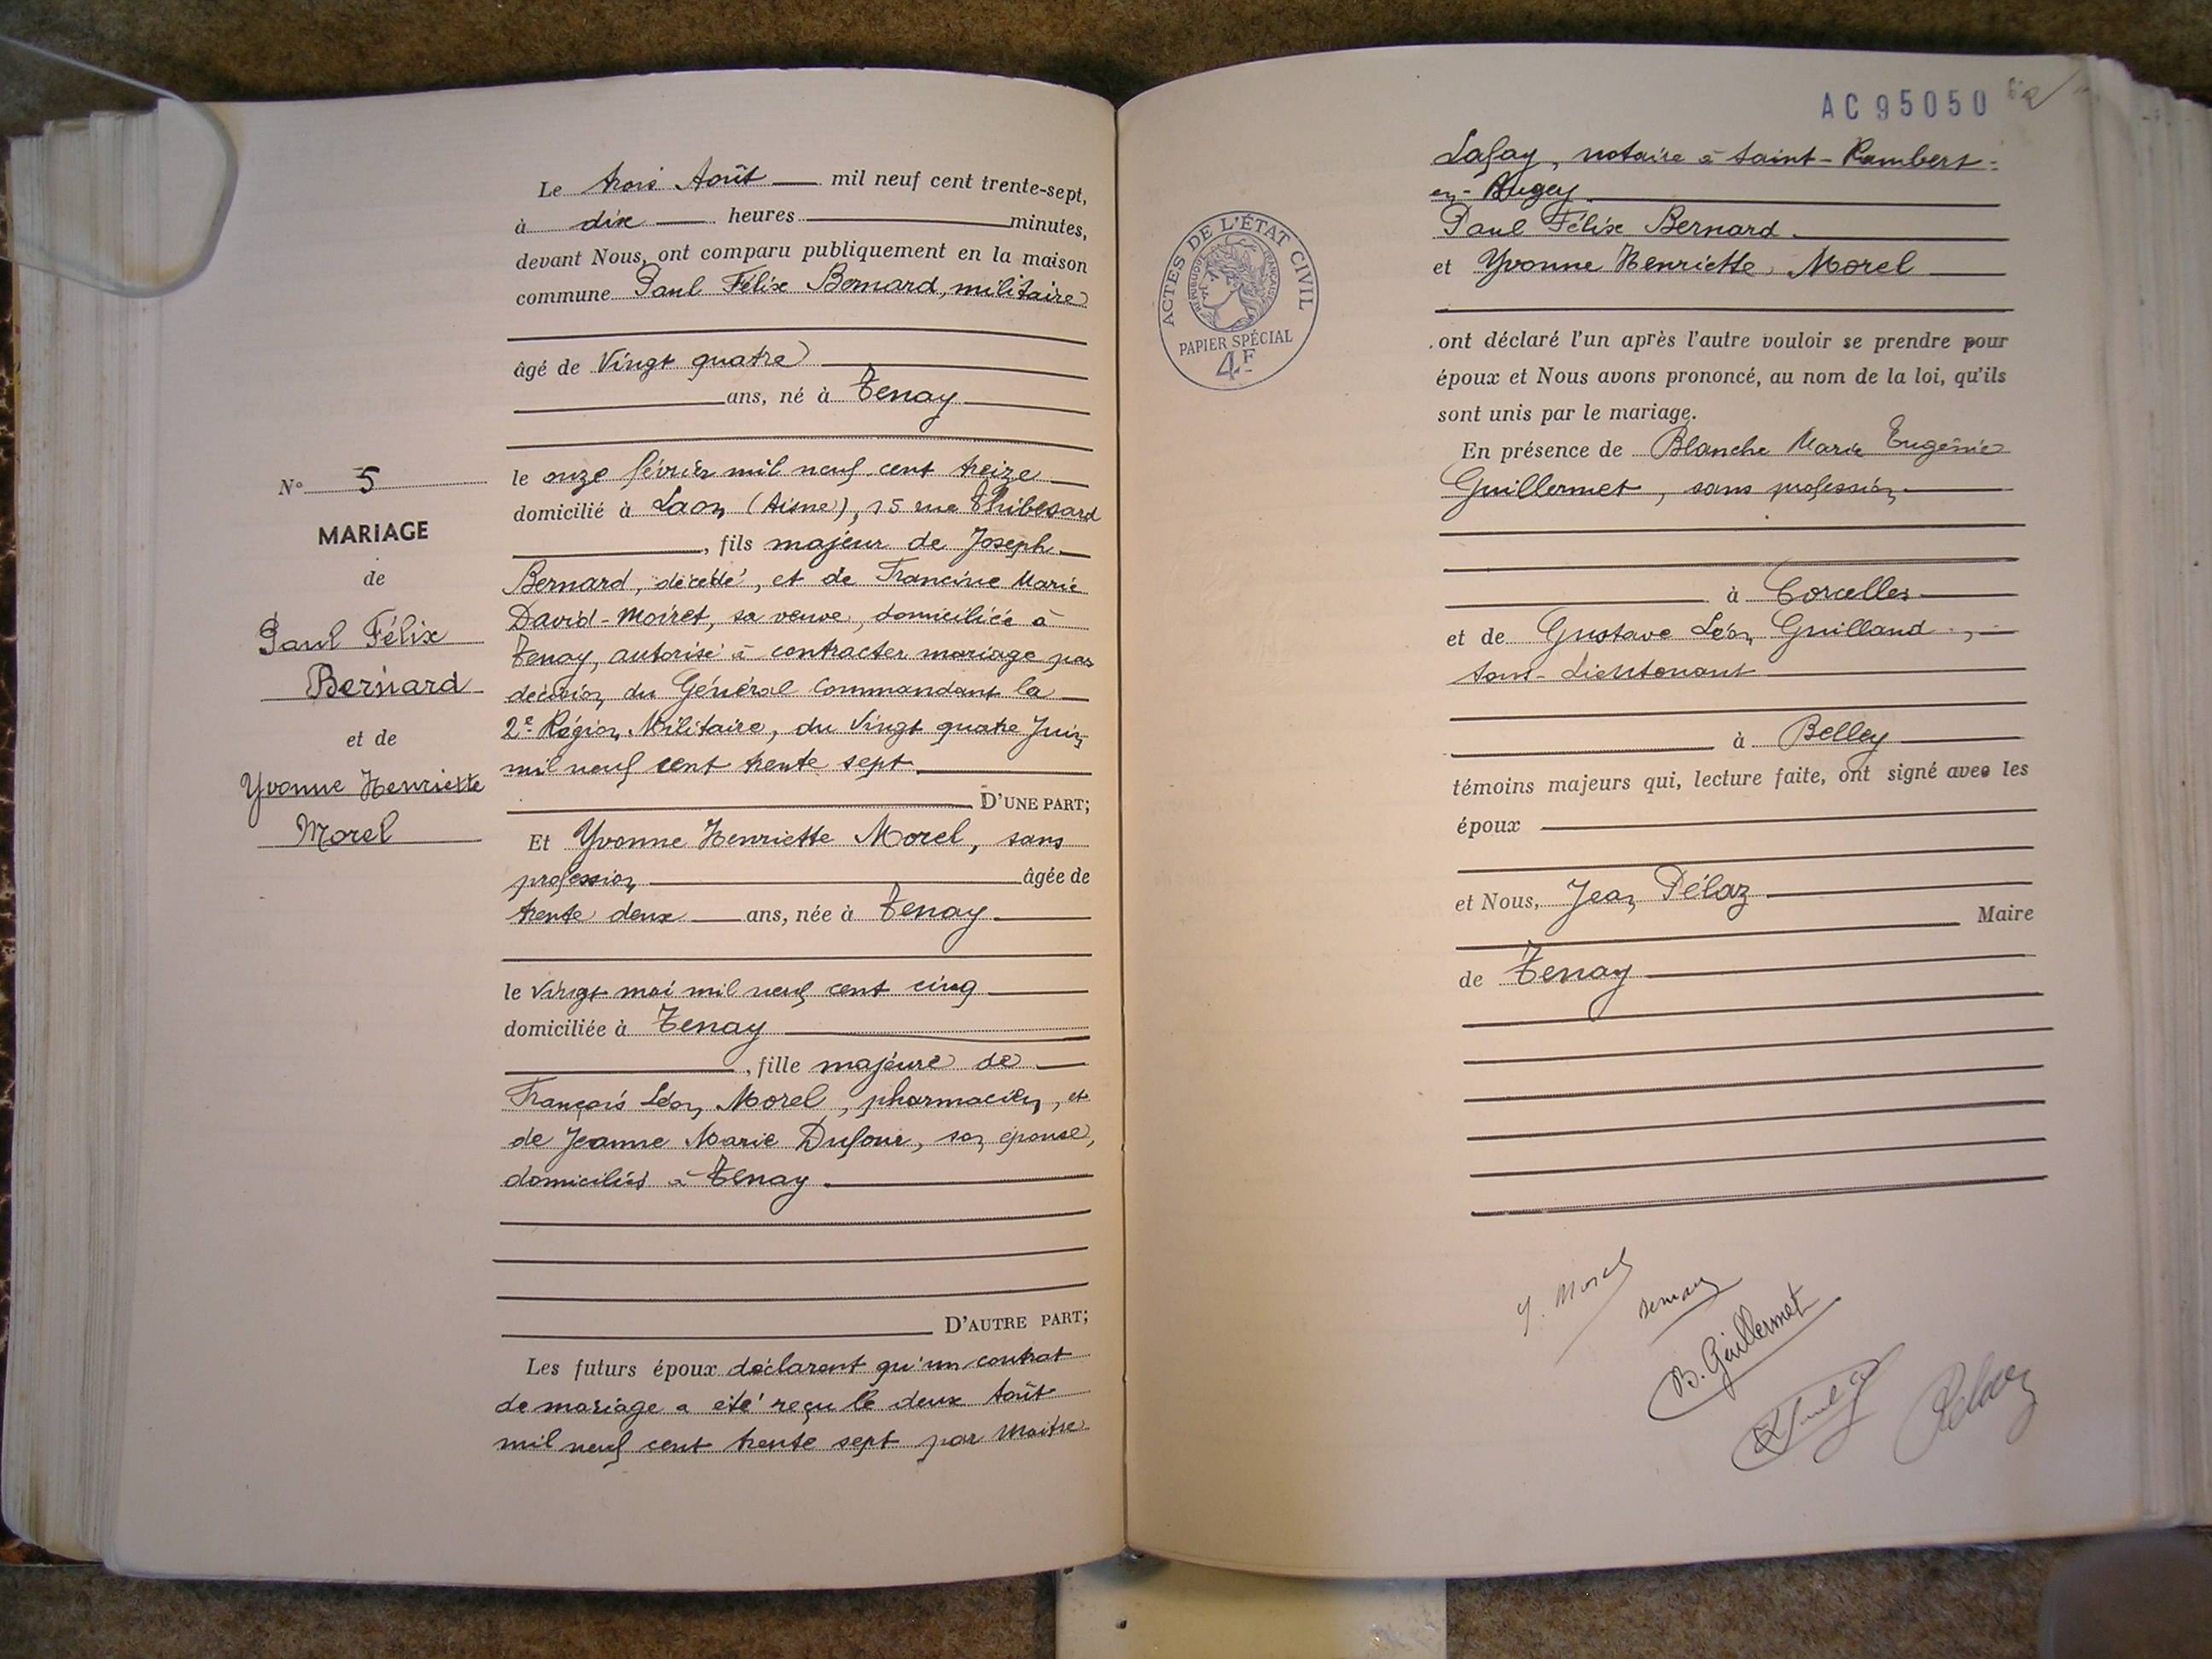 N° 5
MARIAGE
de
Paul Félix
Bernard
et de
Yvonne Henriette
Morel
Le trois Août mil neuf cent trente-sept,
à dix heures minutes,
devant Nous, ont comparu publiquement en la maison
commune Paul Félix Bernard, militaire
âgé de Vingt quatre
ans, né à Tenay
le onze février mil neuf cent treize
domicilié à Laon (Aisne), 15 rue Thibesard
, fils majeur de Joseph
Bernard, décédé, et de Francine Marie
David-Moiret, sa veuve, domiciliée à
Tenay, autorisé à contracter mariage par
décision du Général Commandant la
2e Région Militaire, du Vingt quatre Juin
mil neuf cent trente sept.
D'UNE PART;
Et Yvonne Henriette Morel, sans
profession âgée de
trente deux ans, née à Tenay
le Vingt mai mil neuf cent cinq
domiciliée à Tenay
, fille majeure de
François Léon Morel, pharmacien, et
de Jeanne Marie Dufour, son épouse,
domiciliés à Tenay.
D'AUTRE PART;
Les futurs époux déclarent qu'un contrat
de mariage a été reçu le deux Août
mil neuf cent trente sept par Maître
AC 95050
ACTES DE L'ÉTAT CIVIL
RÉPUBLIQUE FRANÇAISE
PAPIER SPÉCIAL
4F
Lafay, notaire à Saint-Rambert-
en-Bugey.
Paul Félix Bernard.
et Yvonne Henriette Morel
ont déclaré l'un après l'autre vouloir se prendre pour
époux et Nous avons prononcé, au nom de la loi, qu'ils
sont unis par le mariage.
En présence de Blanche Marie Eugénie
Guillermet, sans profession
à Corcelles
et de Gustave Léon Guilland,
sous-lieutenant
à Belley
témoins majeurs qui, lecture faite, ont signé avec les
époux
et Nous, Jean Pélaz
Maire
de Tenay
Y. Morel
Bernard
B. Guillermet
Pelaz